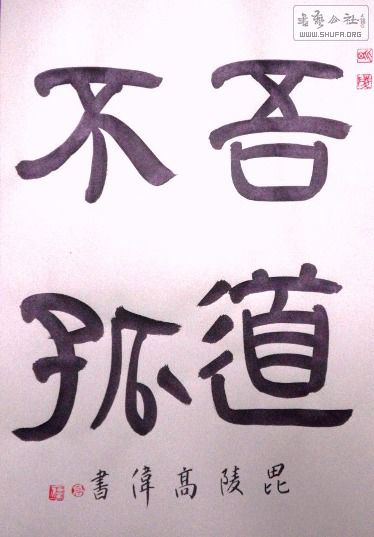 吾道
不孤
毘陵高偉書
書藝公社
WWW.SHUFA.ORG